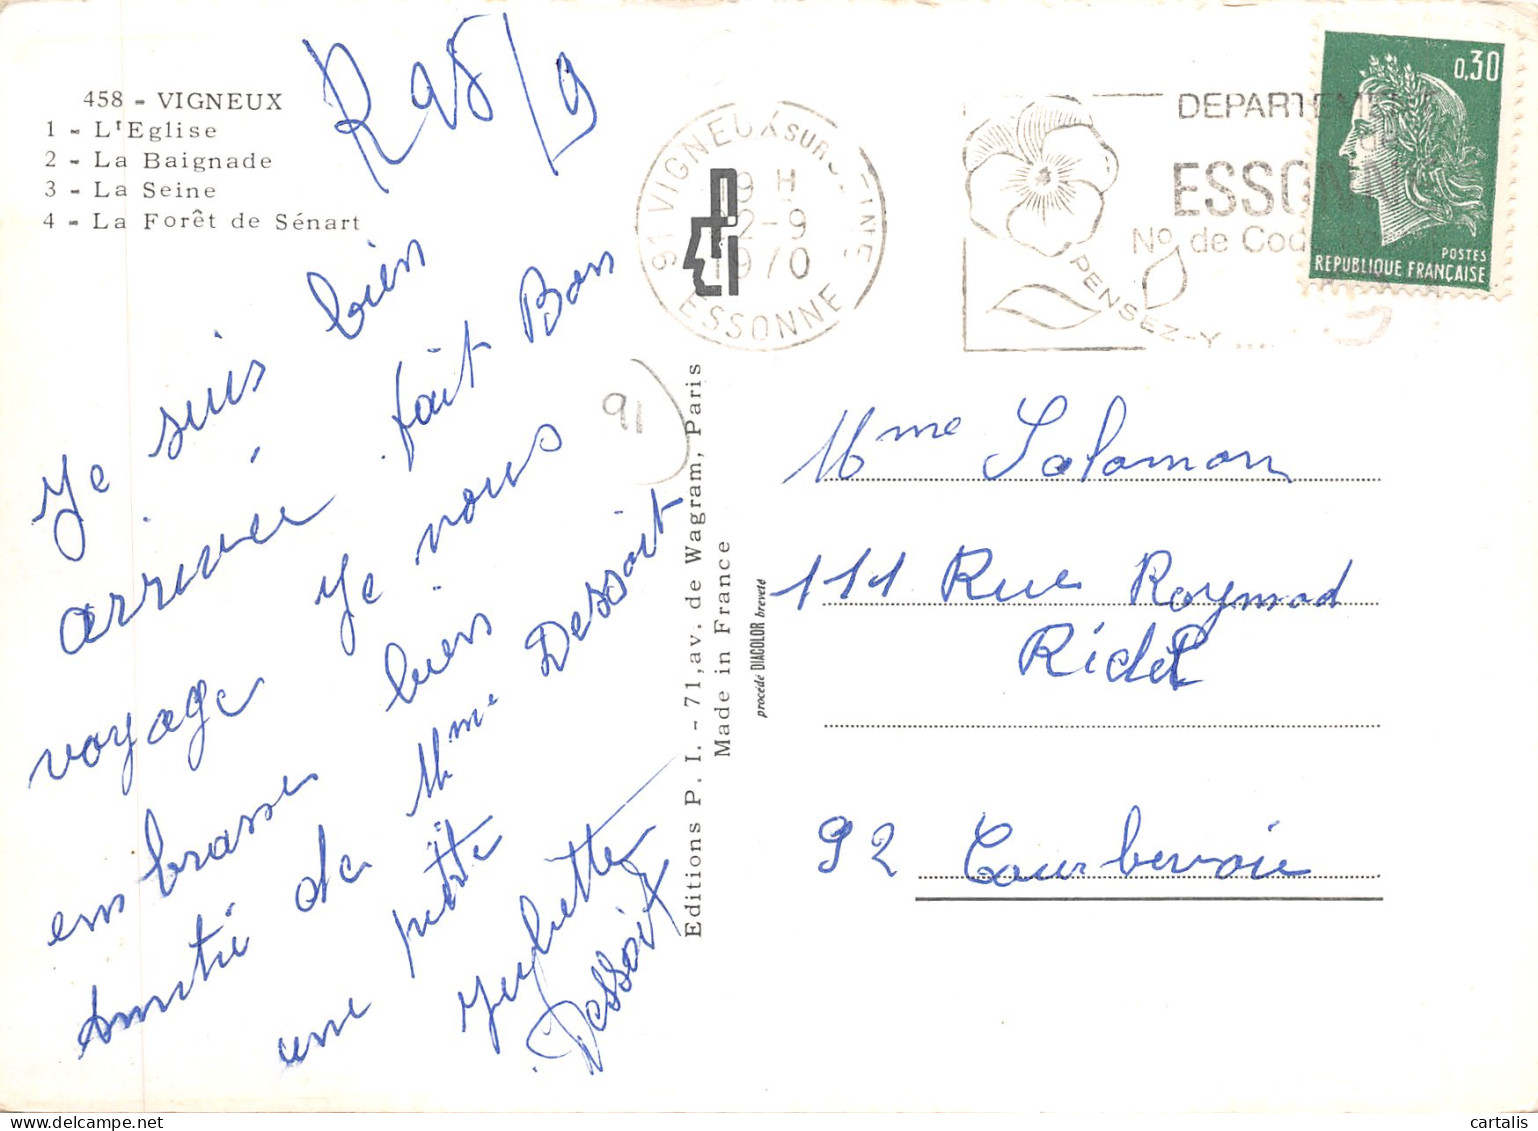 458 - VIGNEUX
1 - L'Eglise
2 - La Baignade
3 - La Seine
4 - La Forêt de Sénart
Je suis bien
arrivée fait Bon
voyage Je vous
embrasse bien
Amitié de Mme Dessoit
une petite
Juliette
Dessoit
91
Editions P. I. - 71, av. de Wagram, Paris
Made in France
procédé DIACOLOR breveté
91 VIGNEUX SUR SEINE
9 H
2-9
1970
ESSONNE
DEPARTEME
de
ESSONN
No de Cod
PENSEZ-Y ....
0,30
POSTES
REPUBLIQUE FRANÇAISE
Mme Salomon
111 Rue Raymond
Ridel
92 Courbevoie
cartalis